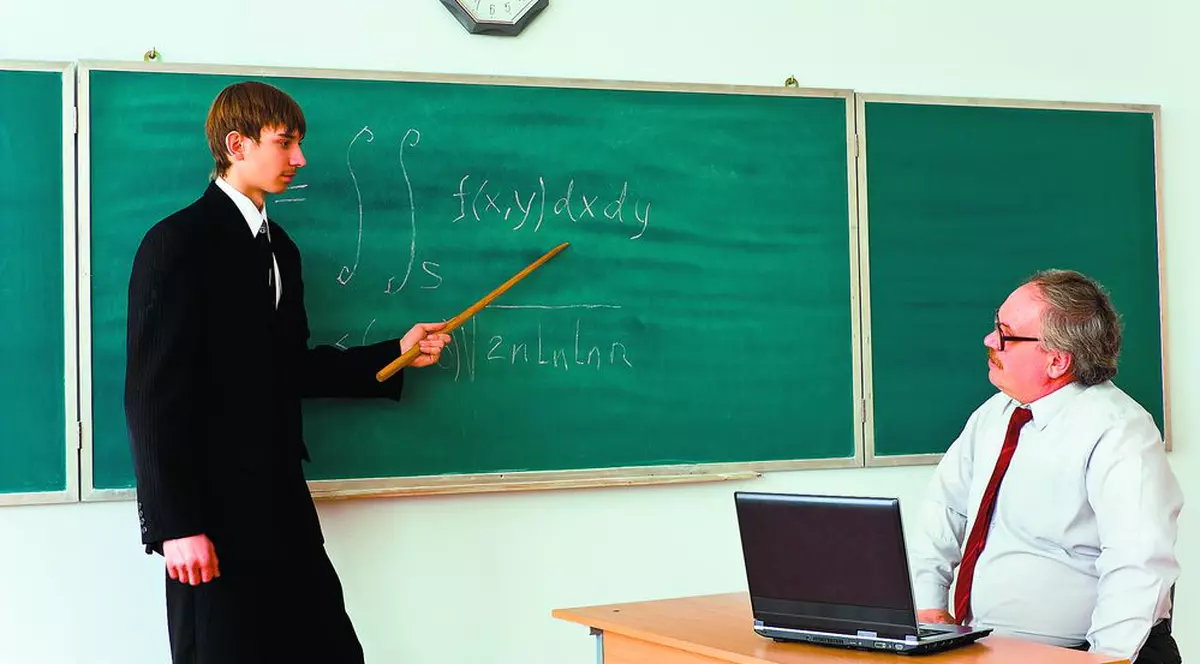 = ∫∫_S f(x,y)dxdy
√2nLnLnn